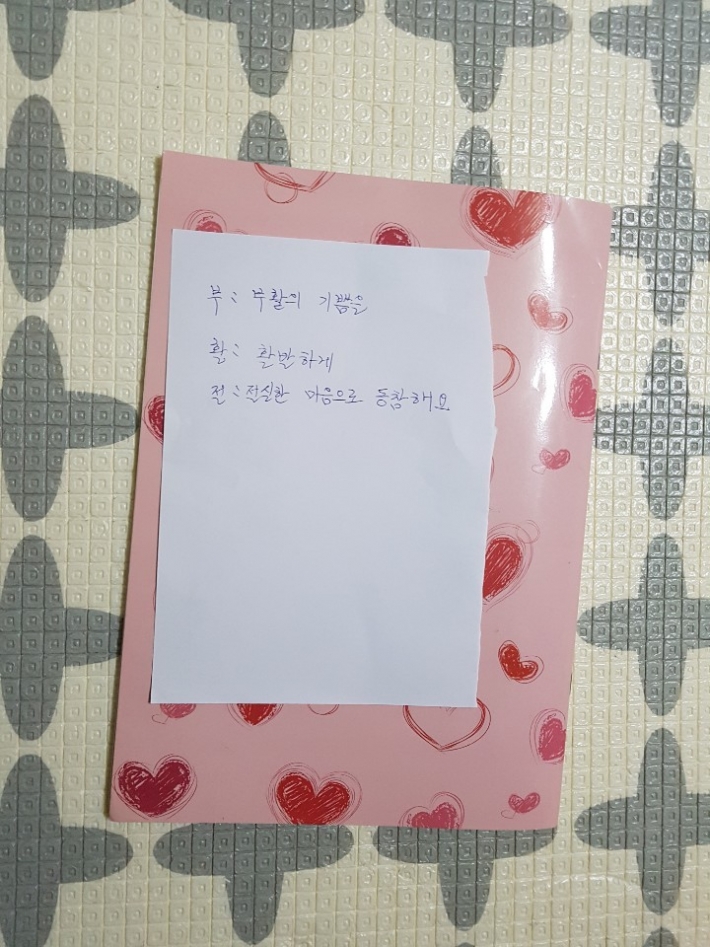 부: 부활의 기쁨을
활: 활발하게
절: 절실한 마음으로 동참해요